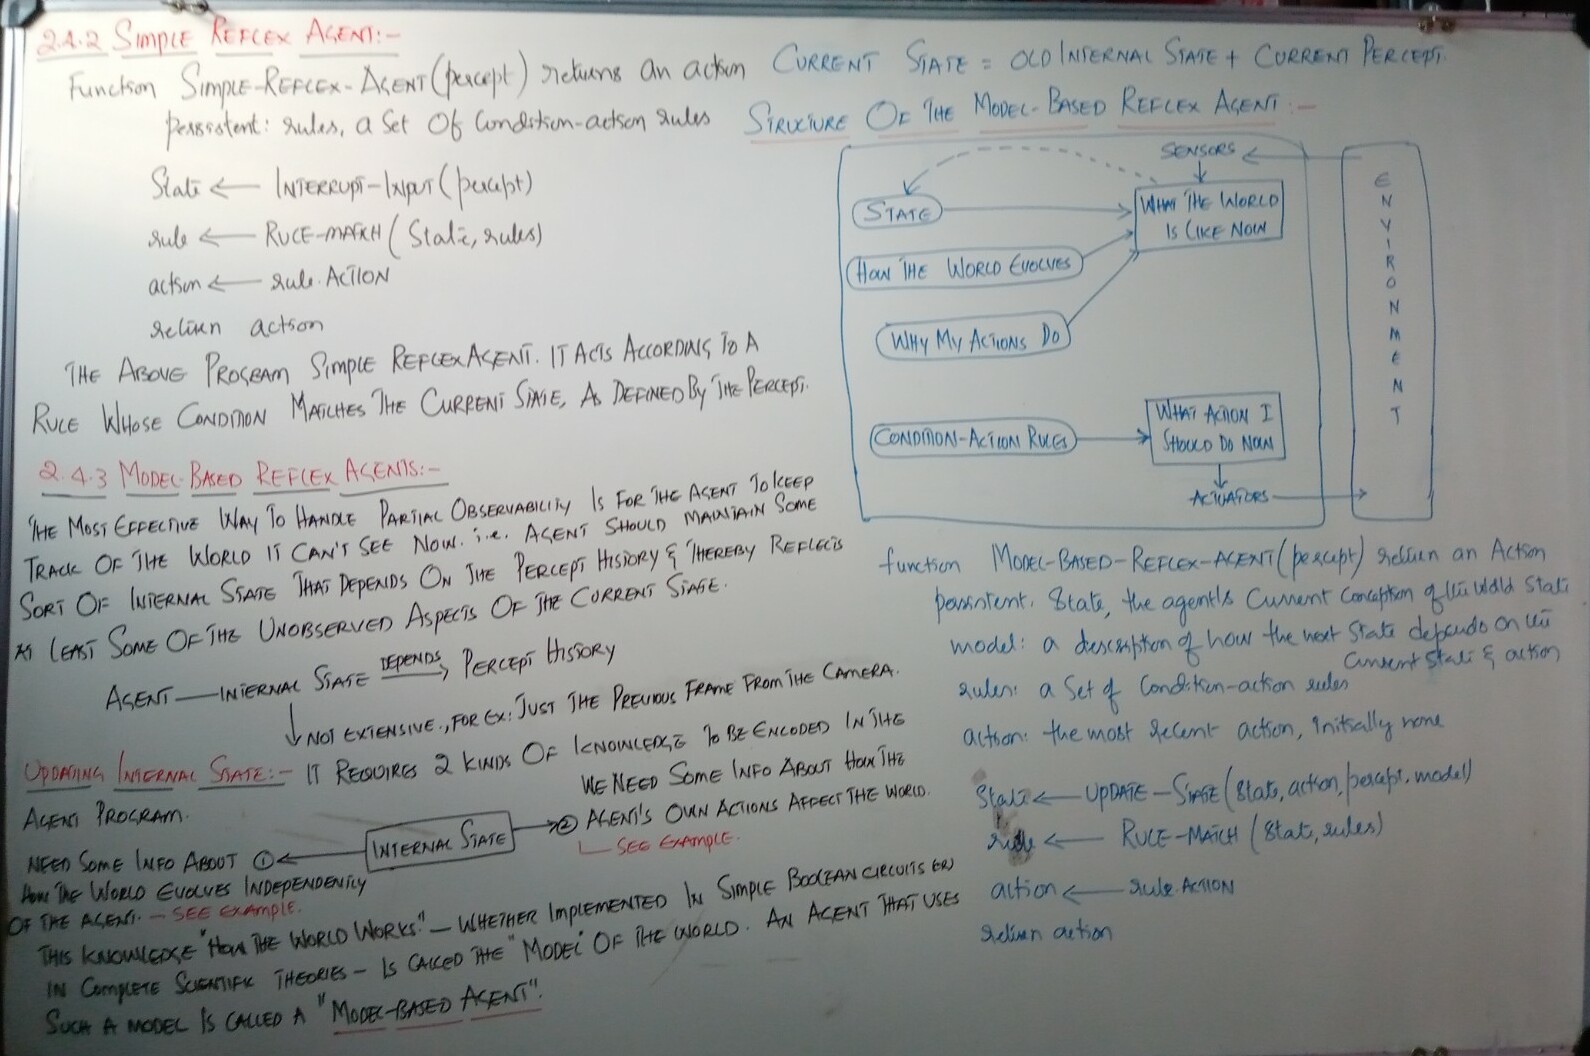 2.4.2 SIMPLE REFLEX AGENT:-
Function SIMPLE-REFLEX-AGENT(percept) returns an action
persistent: rules, a Set Of Condition-action rules
State ← INTERRUPT-INPUT(percept)
rule ← RULE-MATCH(State, rules)
action ← rule.ACTION
return action
THE ABOVE PROGRAM SIMPLE REFLEX AGENT. IT ACTS ACCORDING TO A
RULE WHOSE CONDITION MATCHES THE CURRENT STATE, AS DEFINED BY THE PERCEPT.
2.4.3 MODEL-BASED REFLEX AGENTS:-
THE MOST EFFECTIVE WAY TO HANDLE PARTIAL OBSERVABILITY IS FOR THE AGENT TO KEEP
TRACK OF THE WORLD IT CAN'T SEE NOW. i.e. AGENT SHOULD MAINTAIN SOME
SORT OF INTERNAL STATE THAT DEPENDS ON THE PERCEPT HISTORY & THEREBY REFLECTS
AT LEAST SOME OF THE UNOBSERVED ASPECTS OF THE CURRENT STATE.
AGENT — INTERNAL STATE DEPENDS → PERCEPT HISTORY
↓ NOT EXTENSIVE., FOR EX: JUST THE PREVIOUS FRAME FROM THE CAMERA.
UPDATING INTERNAL STATE:- IT REQUIRES 2 KINDS OF KNOWLEDGE TO BE ENCODED IN THE
AGENT PROGRAM.
WE NEED SOME INFO ABOUT HOW THE
INTERNAL STATE → ② AGENT'S OWN ACTIONS AFFECT THE WORLD.
SEE EXAMPLE.
NEED SOME INFO ABOUT ① ←
HOW THE WORLD EVOLVES INDEPENDENTLY
OF THE AGENT. – SEE EXAMPLE.
THIS KNOWLEDGE "HOW THE WORLD WORKS" – WHETHER IMPLEMENTED IN SIMPLE BOOLEAN CIRCUITS (OR)
IN COMPLETE SCIENTIFIC THEORIES – IS CALLED THE "MODEL" OF THE WORLD. AN AGENT THAT USES
SUCH A MODEL IS CALLED A "MODEL-BASED AGENT".
CURRENT STATE = OLD INTERNAL STATE + CURRENT PERCEPT.
STRUCTURE OF THE MODEL-BASED REFLEX AGENT:-
SENSORS
STATE
WHAT THE WORLD
IS LIKE NOW
HOW THE WORLD EVOLVES
WHY MY ACTIONS DO
CONDITION-ACTION RULES
WHAT ACTION I
SHOULD DO NOW
ACTUATORS
ENVIRONMENT
function MODEL-BASED-REFLEX-AGENT(percept) return an Action
persistent. State, the agent's Current Conception of the World State
model: a description of how the next State depends on the
Current State & action
rules: a Set of Condition-action rules
action: the most recent action, initially none
State ← UPDATE-STATE(State, action, percept, model)
rule ← RULE-MATCH(State, rules)
action ← rule.ACTION
return action